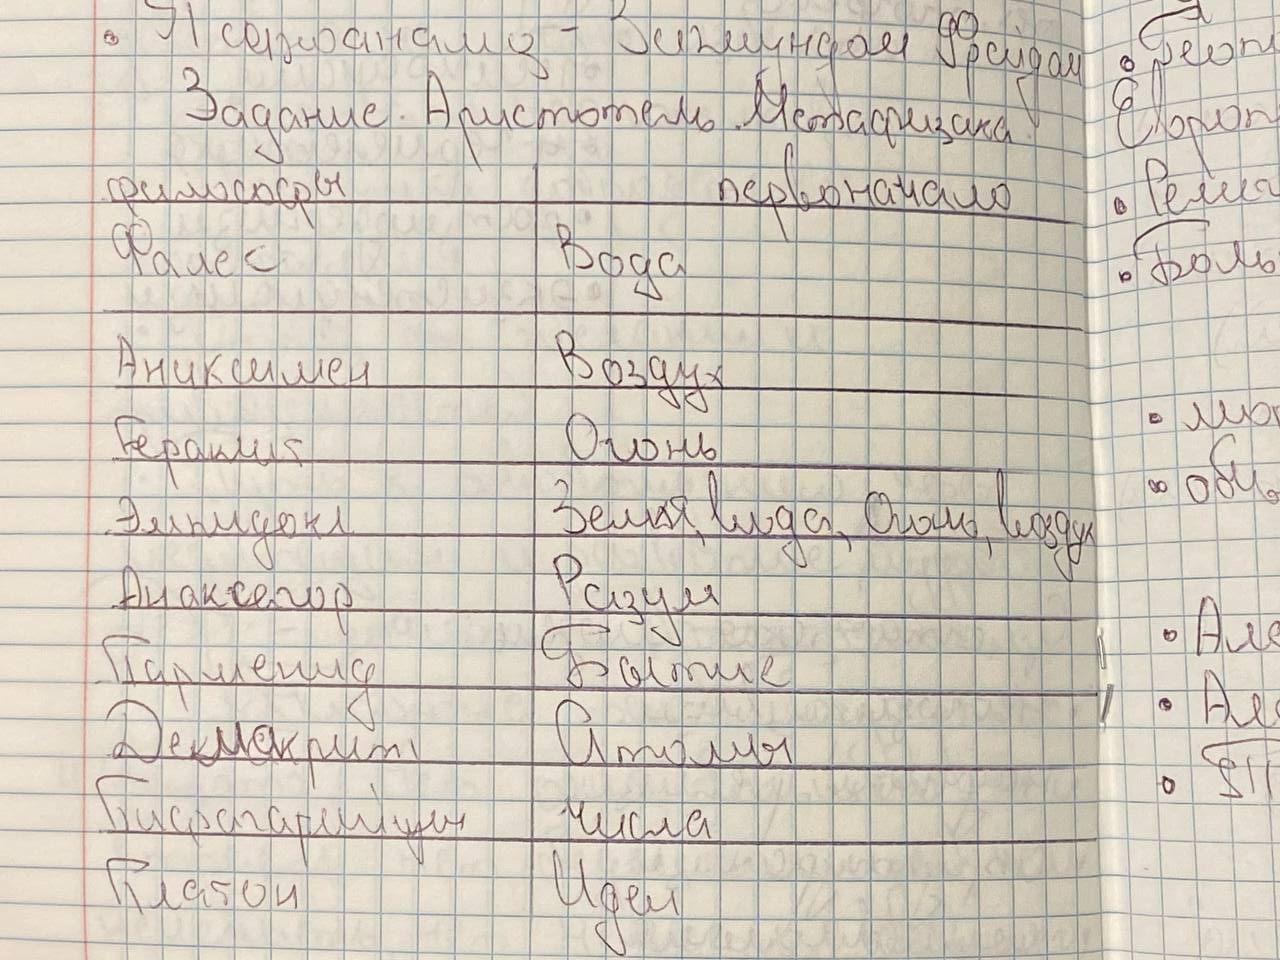 • Психоанализ - Зигмундом Фрейдом
Задание. Аристотель. Метафизика.
философы первоначало
Фалес Вода
Аниксимен Воздух
Гераклит Огонь
Эмпидокл Земля, вода, Огонь, воздух
Анаксегор Разум
Парменид Бытие
Демокрит Атомы
Пифагарейцы числа
Платон Идеи